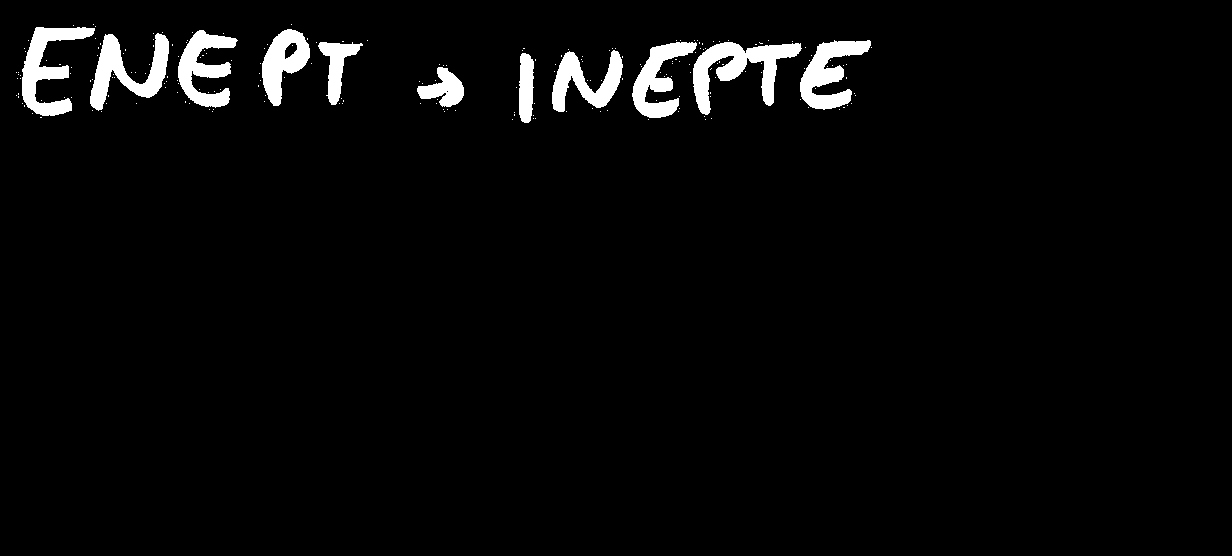 ENEPT → INEPTE